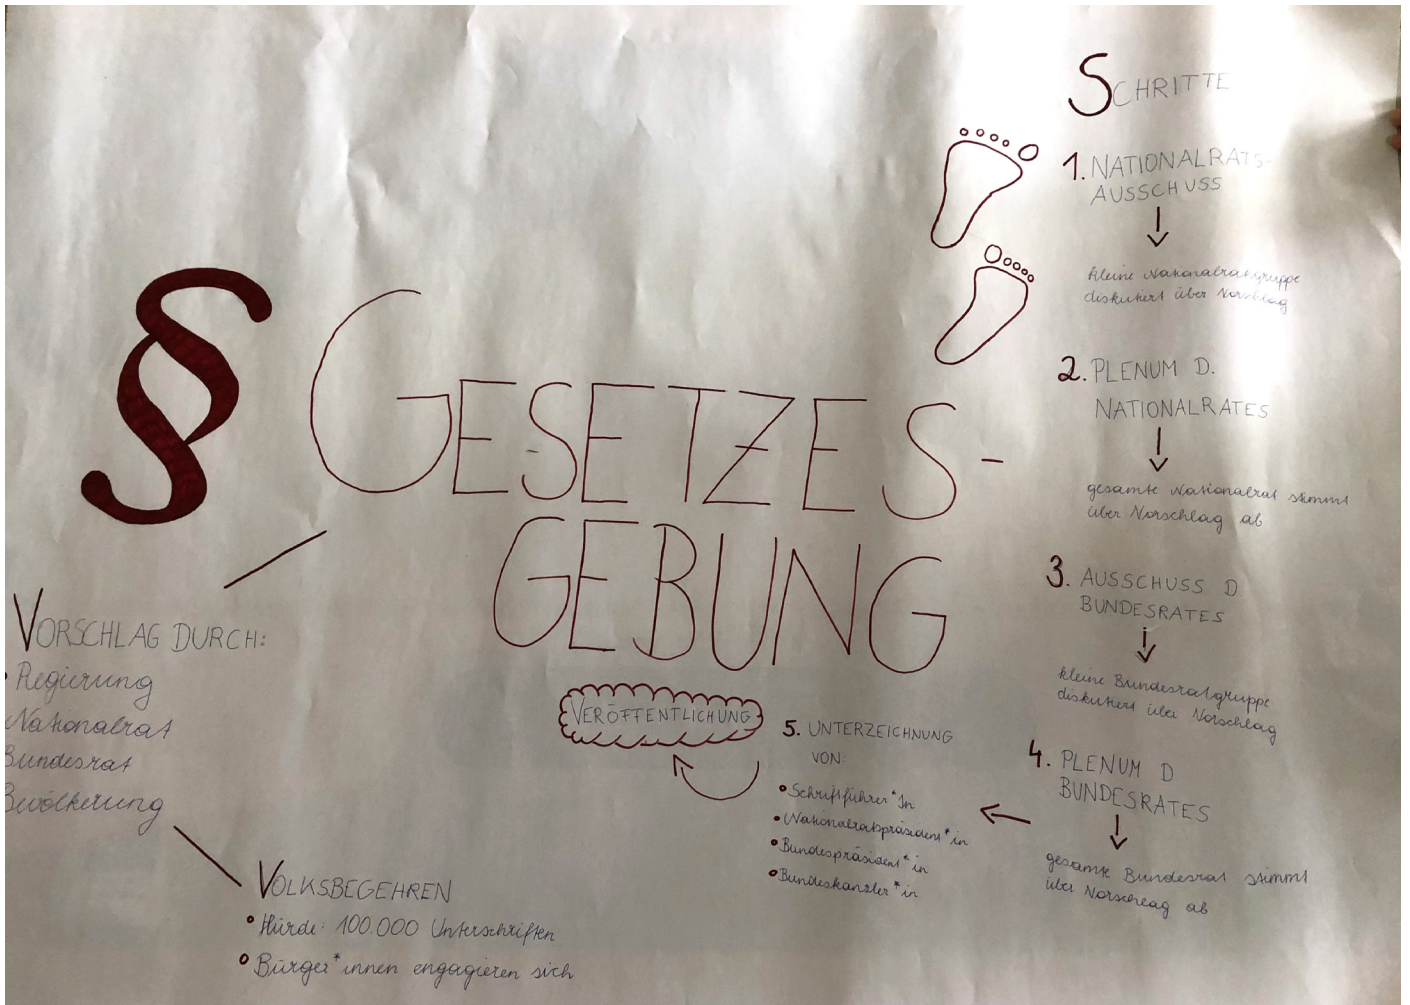 § GESETZES-
GEBUNG
VORSCHLAG DURCH:
• Regierung
Nationalrat
Bundesrat
Bevölkerung
VOLKSBEGEHREN
• Hürde: 100.000 Unterschriften
• Bürger*innen engagieren sich
SCHRITTE
1. NATIONALRATS-
AUSSCHUSS
kleine Nationalratgruppe
diskutiert über Vorschlag
2. PLENUM D.
NATIONALRATES
gesamte Nationalrat stimmt
über Vorschlag ab
3. AUSSCHUSS D
BUNDESRATES
kleine Bundesratgruppe
diskutiert über Vorschlag
4. PLENUM D
BUNDESRATES
gesamte Bundesrat stimmt
über Vorschlag ab
5. UNTERZEICHNUNG
VON:
• Schriftführer*In
• Nationalratspräsident*in
• Bundespräsident*in
• Bundeskanzler*in
VERÖFFENTLICHUNG